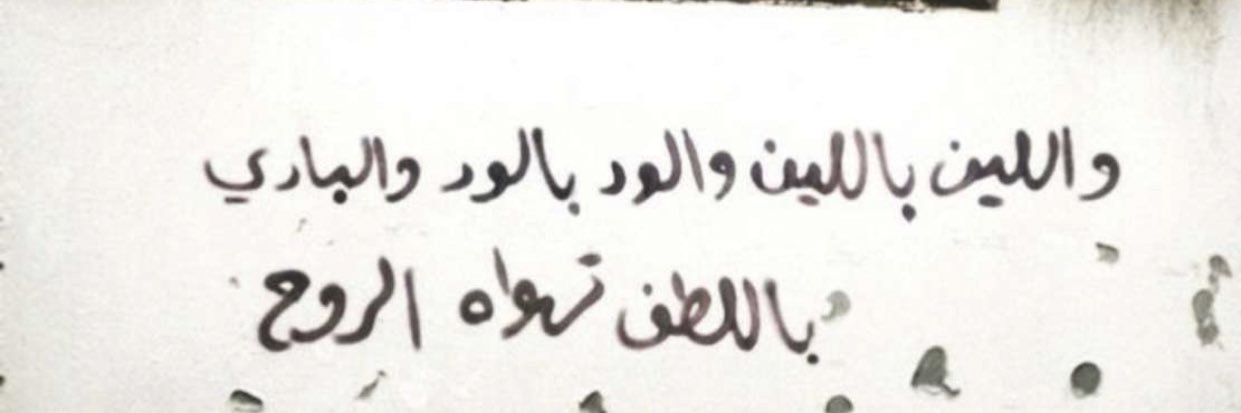 واللين باللين والود بالود والبادي
باللطف تهواه الروح